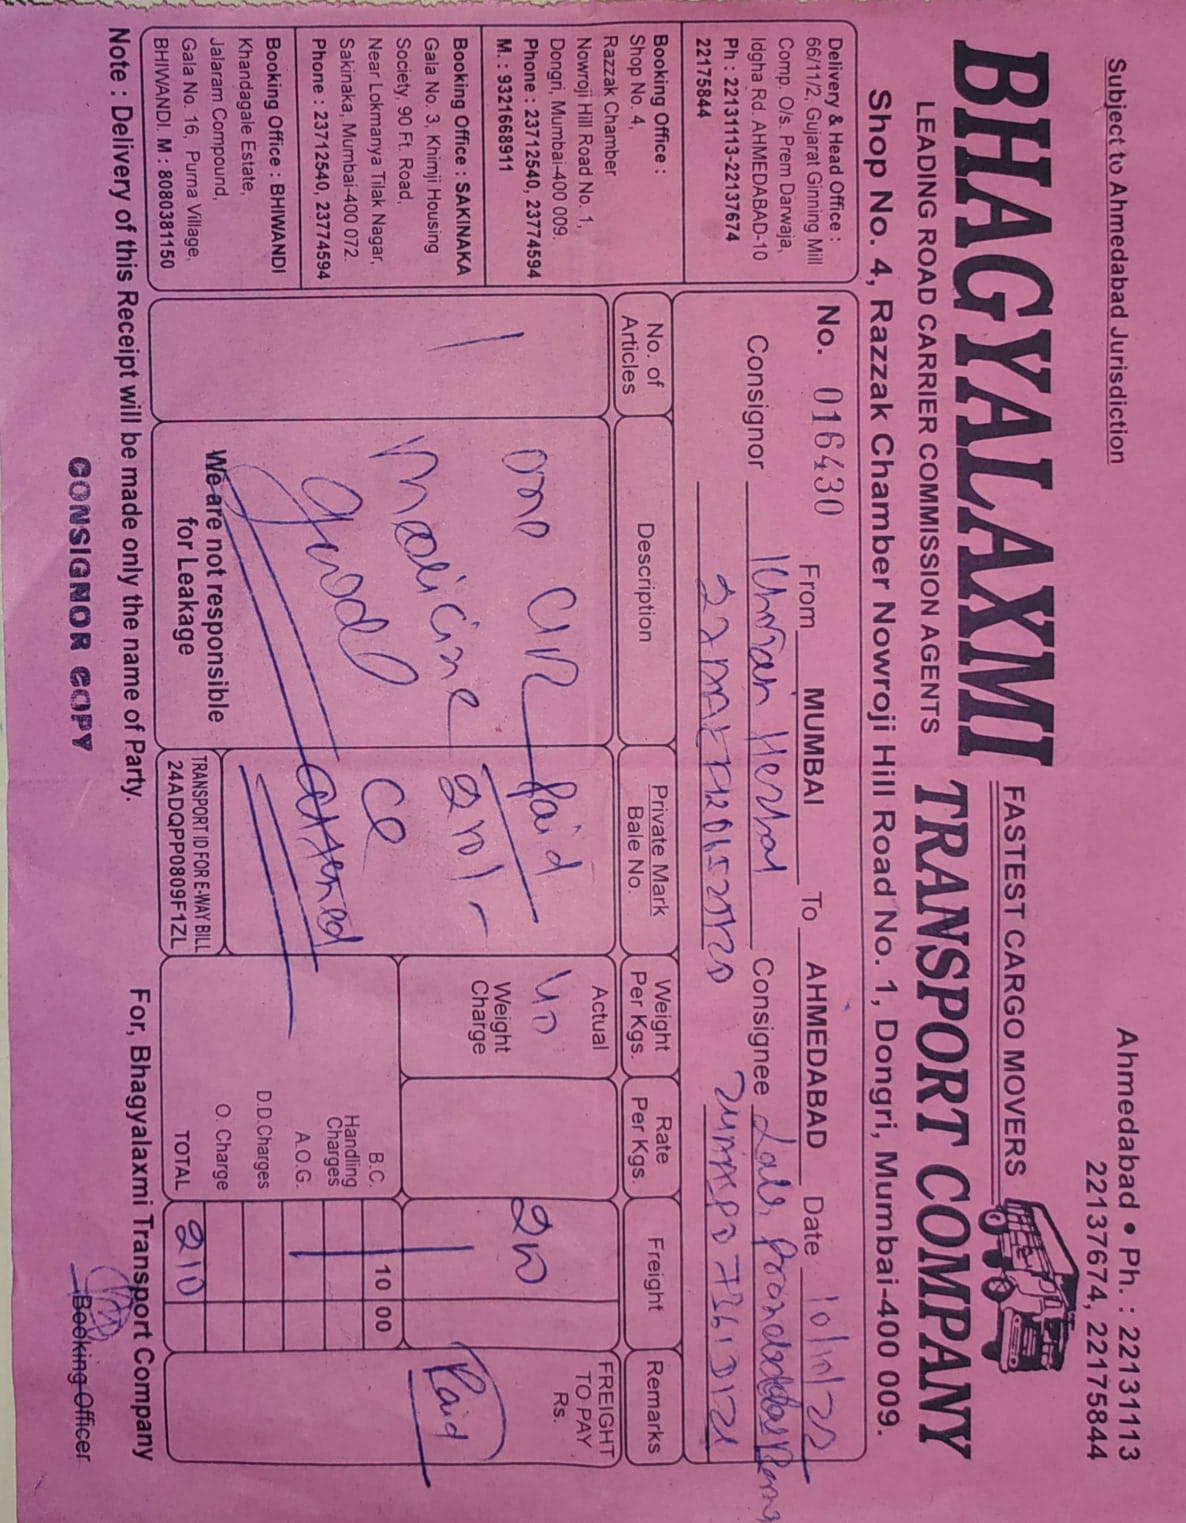 Subject to Ahmedabad Jurisdiction
Ahmedabad • Ph. : 22131113
22137674, 22175844
BHAGYALAXMI
FASTEST CARGO MOVERS
TRANSPORT COMPANY
LEADING ROAD CARRIER COMMISSION AGENTS
Shop No. 4, Razzak Chamber Nowroji Hill Road No. 1, Dongri, Mumbai-400 009.
Delivery & Head Office :
66/11/2, Gujarat Ginning Mill
Comp. O/s. Prem Darwaja,
Idgha Rd. AHMEDABAD-10
Ph : 22131113-22137674
22175844
Booking Office :
Shop No. 4,
Razzak Chamber
Nowroji Hill Road No. 1,
Dongri, Mumbai-400 009.
Phone : 23712540, 23774594
M. : 9321668911
Booking Office : SAKINAKA
Gala No. 3, Khimji Housing
Society, 90 Ft. Road,
Near Lokmanya Tilak Nagar,
Sakinaka, Mumbai-400 072.
Phone : 23712540, 23774594
Booking Office : BHIWANDI
Khandagale Estate,
Jalaram Compound,
Gala No. 16, Purna Village,
BHIWANDI. M : 8080381150
No. 016430 From MUMBAI To AHMEDABAD Date 10/10/22
Consignor Consignee
No. of Articles
Description
Private Mark
Bale No.
Weight Per Kgs.
Rate Per Kgs.
Freight
Remarks
1
one
Medicine
good
We are not responsible
for Leakage
Paid
CC
attached
TRANSPORT ID FOR E-WAY BILL
24ADQPP0809F1ZL
Actual
40
Weight
Charge
200
B.C. 10 00
Handling
Charges
A.O.G.
D.D.Charges
O. Charge
TOTAL 210
FREIGHT
TO PAY
Rs.
Paid
Note : Delivery of this Receipt will be made only the name of Party.
For, Bhagyalaxmi Transport Company
CONSIGNOR COPY
Booking Officer